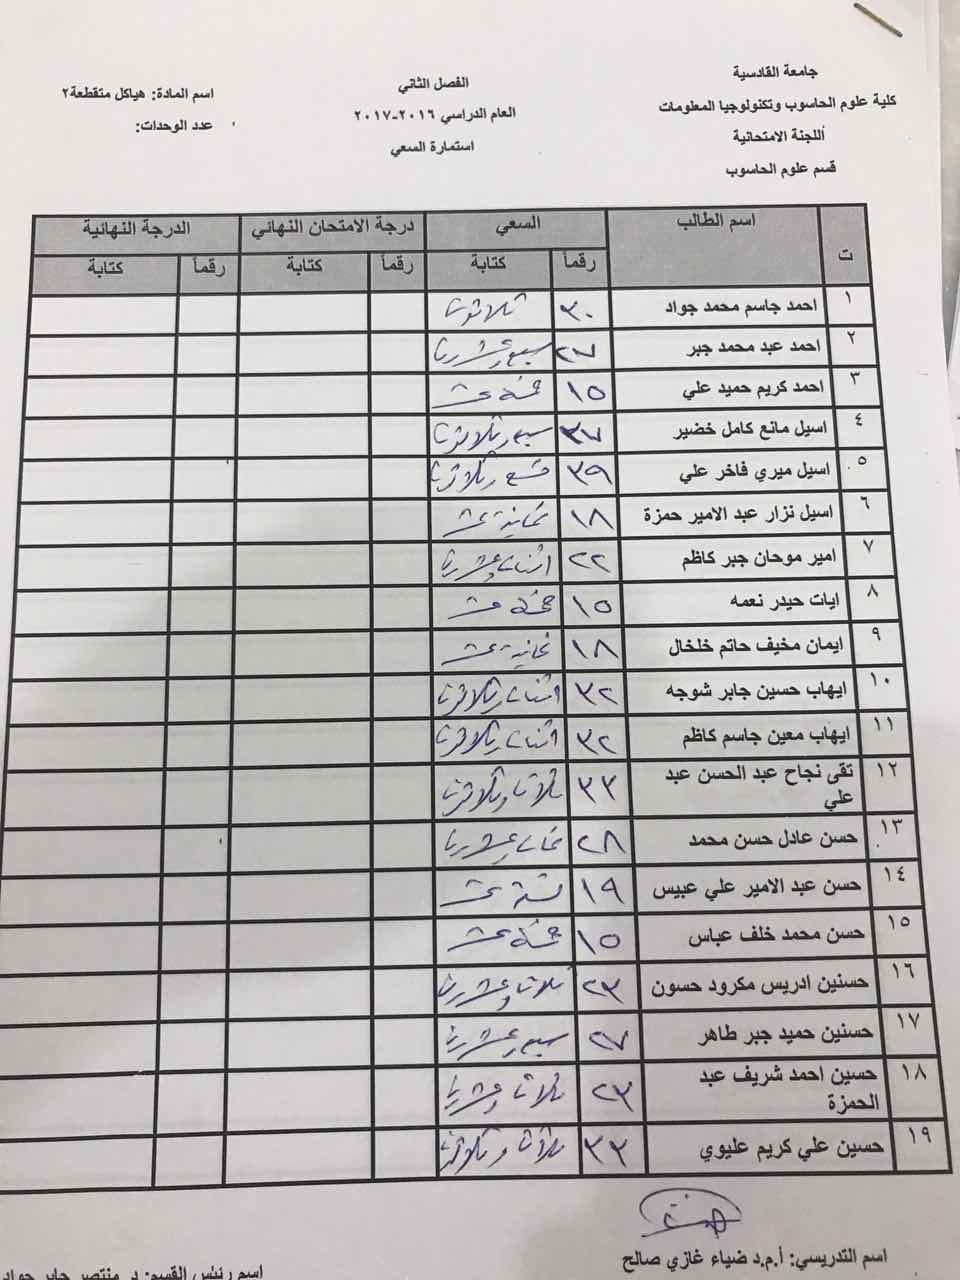 جامعة القادسية
كلية علوم الحاسوب وتكنولوجيا المعلومات
أللجنة الامتحانية
قسم علوم الحاسوب
الفصل الثاني
العام الدراسي ٢٠١٦-٢٠١٧
استمارة السعي
اسم المادة: هياكل متقطعة٢
عدد الوحدات:
ت اسم الطالب السعي درجة الامتحان النهائي الدرجة النهائية
رقماً كتابة رقماً كتابة رقماً كتابة
١ احمد جاسم محمد جواد ٣٠ ثلاثون
٢ احمد عبد محمد جبر ٢٧ سبع وعشرون
٣ احمد كريم حميد علي ١٥ خمسة عشر
٤ اسيل مانع كامل خضير ٣٧ سبع وثلاثون
٥ اسيل ميري فاخر علي ٣٩ تسع وثلاثون
٦ اسيل نزار عبد الامير حمزة ١٨ ثمانية عشر
٧ امير موحان جبر كاظم ٢٢ اثنان وعشرون
٨ ايات حيدر نعمه ١٥ خمسة عشر
٩ ايمان مخيف حاتم خلخال ١٨ ثمانية عشر
١٠ ايهاب حسين جابر شوجه ٣٢ اثنان وثلاثون
١١ ايهاب معين جاسم كاظم ٣٢ اثنان وثلاثون
١٢ تقى نجاح عبد الحسن عبد ٣٣ ثلاث وثلاثون
علي
١٣ حسن عادل حسن محمد ٢٨ ثمان وعشرون
١٤ حسن عبد الامير علي عبيس ١٩ تسعة عشر
١٥ حسن محمد خلف عباس ١٥ خمسة عشر
١٦ حسنين ادريس مكرود حسون ٢٣ ثلاث وعشرون
١٧ حسنين حميد جبر طاهر ٢٧ سبع وعشرون
١٨ حسين احمد شريف عبد ٢٣ ثلاث وعشرون
الحمزة
١٩ حسين علي كريم عليوي ٣٣ ثلاث وثلاثون
اسم التدريسي: أ.م.د ضياء غازي صالح
اسم رئيس القسم: د. منتصر جابر جواد